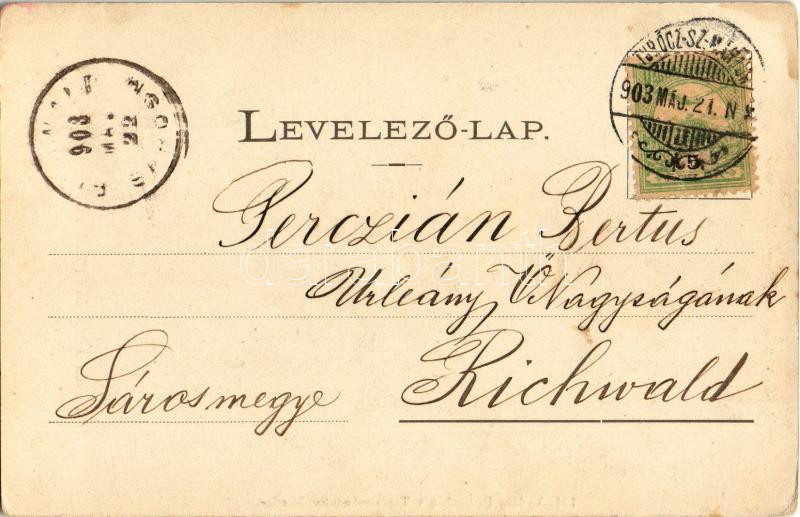 LEVELEZŐ-LAP.
TURÓCZ-SZ-MÁRTON
903 MÁJ. 21. N
5
903
MÁJ
22
Perczián Bertus
Urleány Ő Nagyságának
Richwald
Sárosmegye
databanth